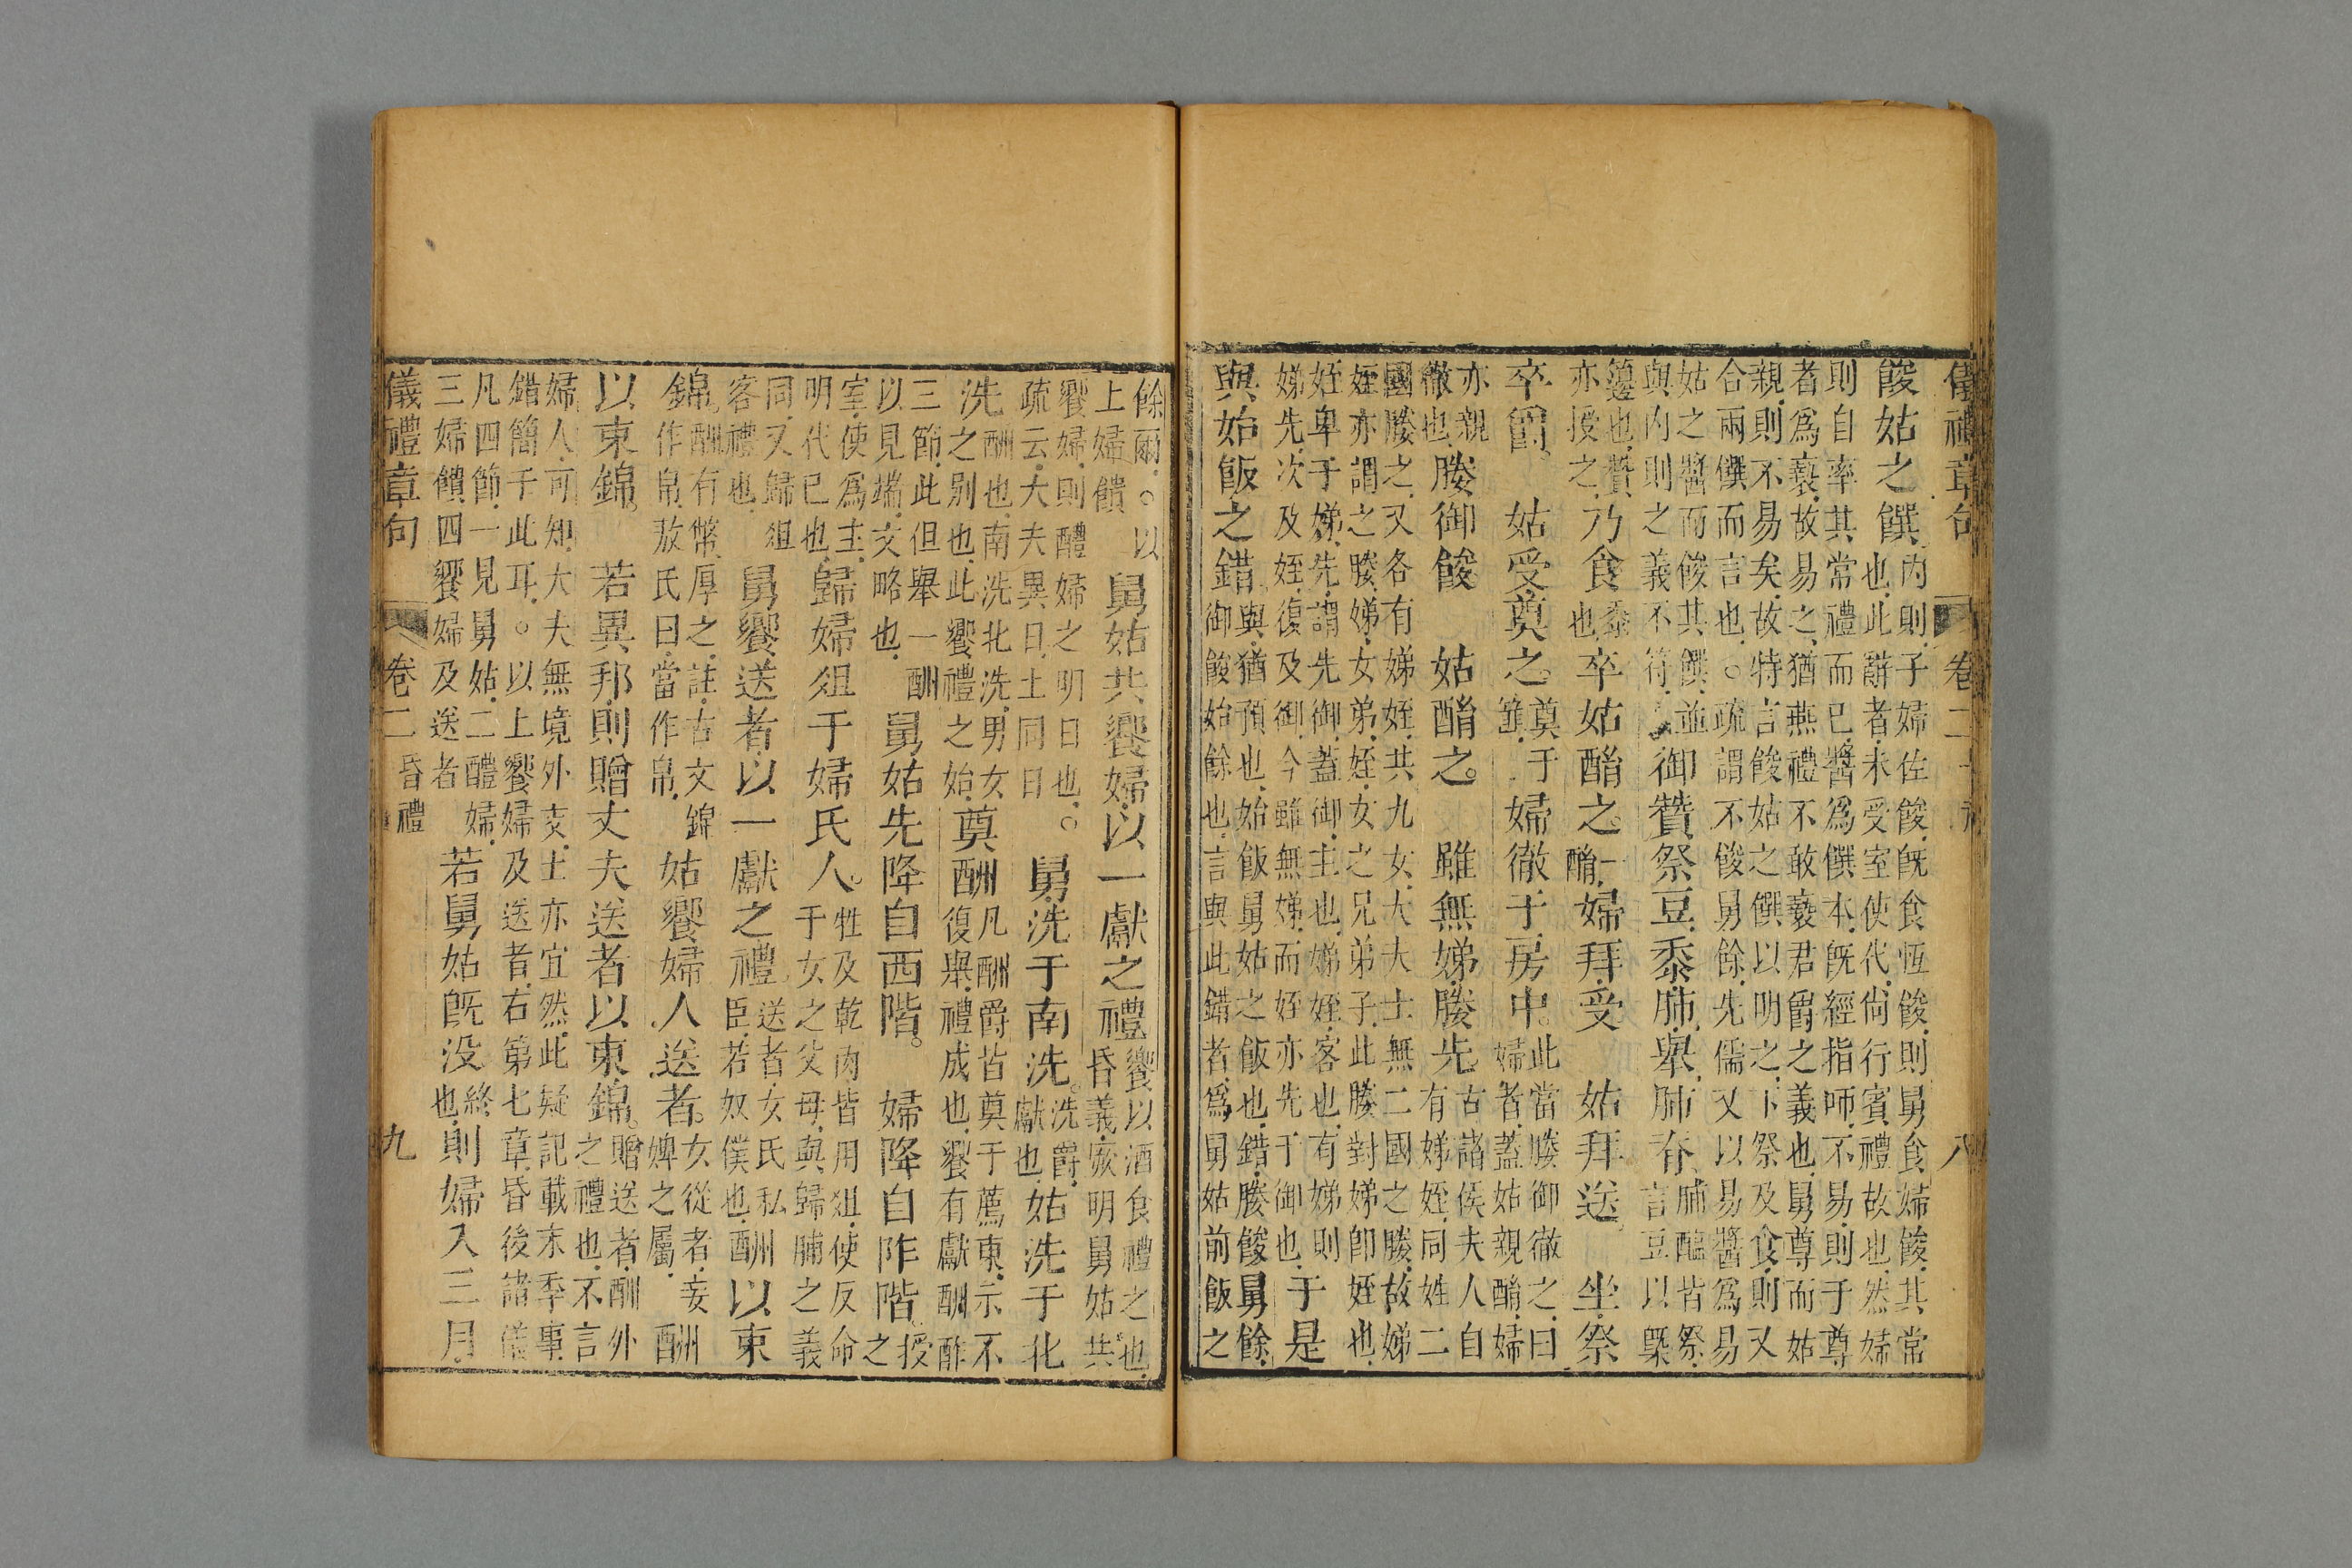 儀禮章句 卷二 昏禮 八
餕姑之饌
內則子婦佐餕旣食恆餕則舅食婦餕其常
也此辭者未受室使代尙行賓禮故也然婦
則自率其常禮而已醬爲饌本旣經指師不易則于尊
者爲褻故易之猶燕禮不敢褻君爵之義也舅尊而姑
親則不易矣故特言餕姑之饌以明之下祭及食則又
合兩饌而言也○疏謂不餕舅餘先儒又以易醬爲易
姑之醬而餕其饌並
與內則之義不符
御贊祭豆黍肺舉肺脊
脯醢皆祭
言豆以槩
籩也贊
亦授之
乃食
黍
也
卒姑酳之
一
酳
婦拜受 姑拜送 坐祭
卒爵 姑受奠之
奠于
篚
婦徹于房中
此當媵御徹之曰
婦者蓋姑親酳婦
亦親
徹也
媵御餕 姑酳之 雖無娣媵先
古諸侯夫人自
有娣姪同姓二
國媵之又各有娣姪共九女大夫士無二國之媵故娣
姪亦謂之媵娣女弟姪女之兄弟子此媵對娣卽姪也
姪卑于娣先謂先御蓋御主也娣姪客也有娣則
娣先次及姪復及御今雖無娣而姪亦先于御也
于是
與始飯之錯
與猶預也始飯舅姑之飯也錯媵餕舅餘
御餕姑餘也言與此錯者爲舅姑前飯之
餘爾○以
上婦饋
舅姑共饗婦以一獻之禮
饗以酒食禮之也
昏義厥明舅姑共
饗婦則醴婦之明日也○
疏云大夫異日士同日
舅洗于南洗
洗爵
獻也
姑洗于北
洗
酬也南洗北洗男女
之別也此饗禮之始
奠酬
凡酬爵皆奠于薦東示不
復舉禮成也饗有獻酬酢
三節此但舉一酬
以見端文略也
舅姑先降自西階 婦降自阼階
授
之
室使爲主
明代已也
歸婦俎于婦氏人
牲及乾肉皆用俎使反命
于女之父母與歸脯之義
同又歸俎
客禮也
舅饗送者以一獻之禮
送者女氏私
臣若奴僕也
酬以束
錦
酬有幣厚之註古文錦
作帛敖氏曰當作帛
姑饗婦人送者
女從者妾
婢之屬
酬
以束錦 若異邦則贈丈夫送者以束錦
贈送者酬外
之禮也不言
婦人可知大夫無境外交士亦宜然此疑記載末季事
錯簡于此耳○以上饗婦及送者右第七章昏後諸儀
凡四節一見舅姑二醴婦
三婦饋四饗婦及送者
若舅姑旣没
終
也
則婦入三月
儀禮章句 卷二 昏禮 九